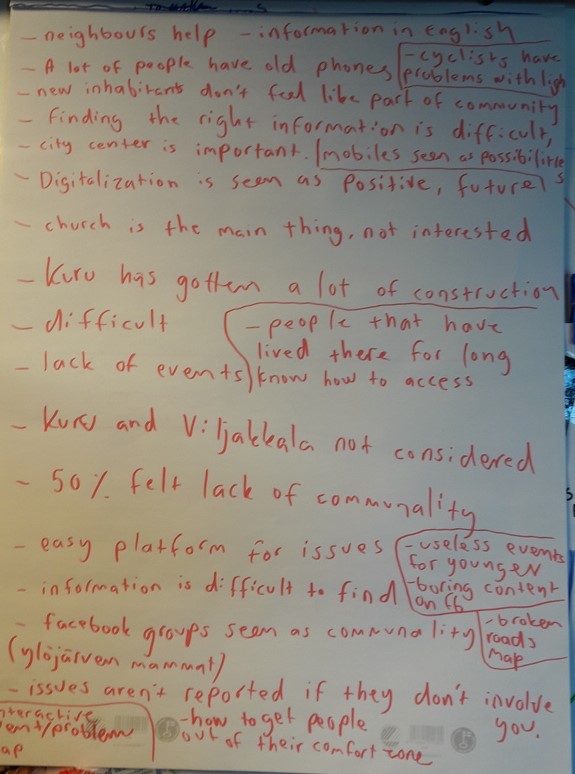 - neighbours help - information in English
- A lot of people have old phones
- cyclists have
problems with ligh
- new inhabitants don't feel like part of community
- finding the right information is difficult,
- city center is important.
mobiles seen as possibilities
- Digitalization is seen as positive, future
- church is the main thing, not interested
- Kuru has gotten a lot of construction
- difficult
- people that have
lived there for long
know how to access
- lack of events
- Kuru and Viljakkala not considered
- 50% felt lack of communality
- easy platform for issues
- useless events
for younger
- boring content
on fb
- information is difficult to find
- facebook groups seem as communality
(ylöjärven mammat)
- broken
roads
map
- issues aren't reported if they don't involve
you.
nteractive
ent/problem
ap
- how to get people
out of their comfort zone